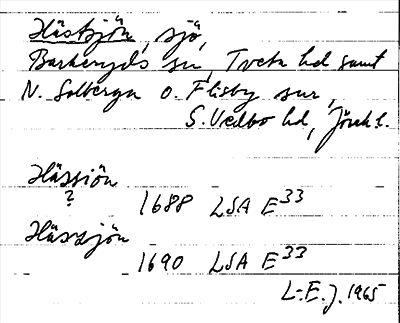 Hästsjön, sjö,
Barkeryds sn, Tveta hd samt
N. Solberga o. Flisby snr,
S. Vedbo hd, Jönk l.
Hässiön
?
1688 LSA E33
Hässjön
1690 LSA E33
L-E.J. 1965